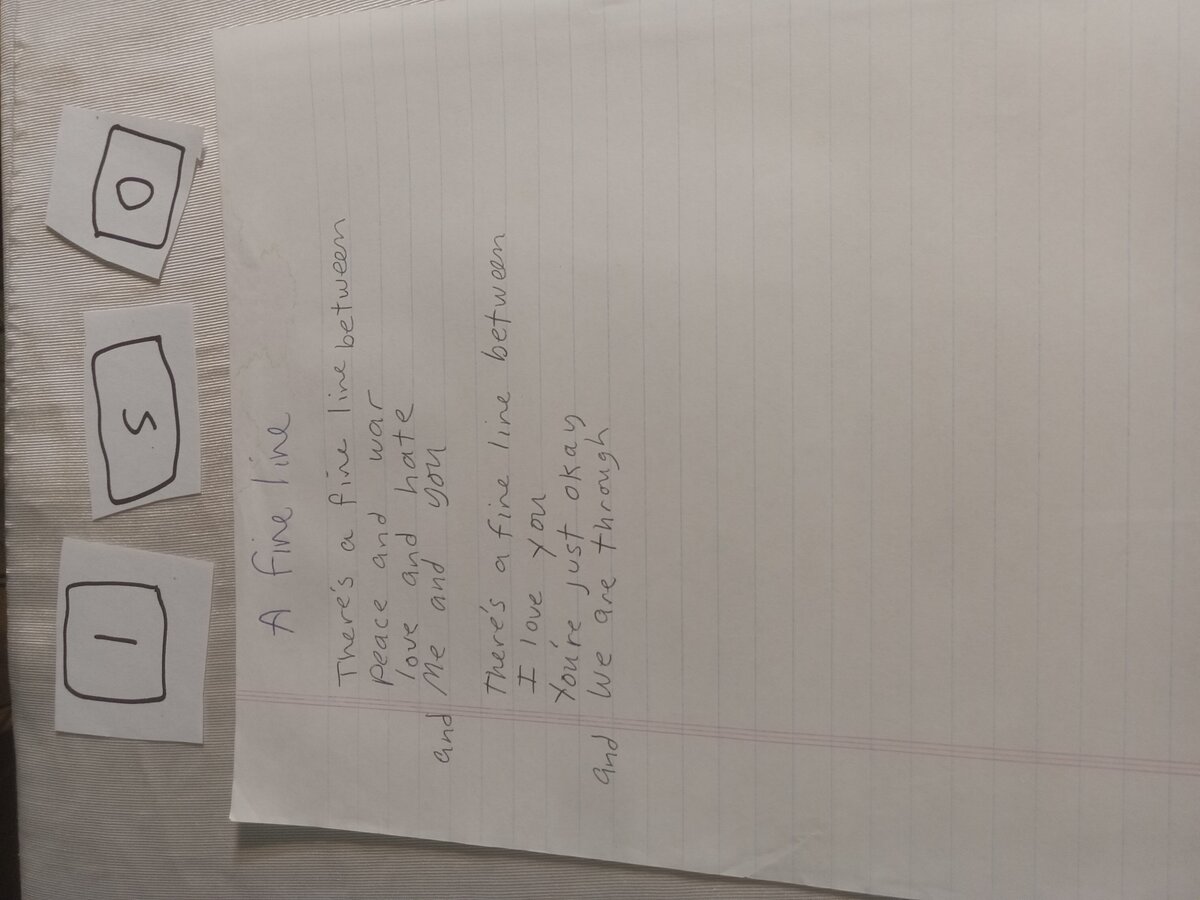 1 5 0
A fine line
There's a fine line between
peace and war
love and hate
and Me and you
There's a fine line between
I love you
You're just okay
and We are through